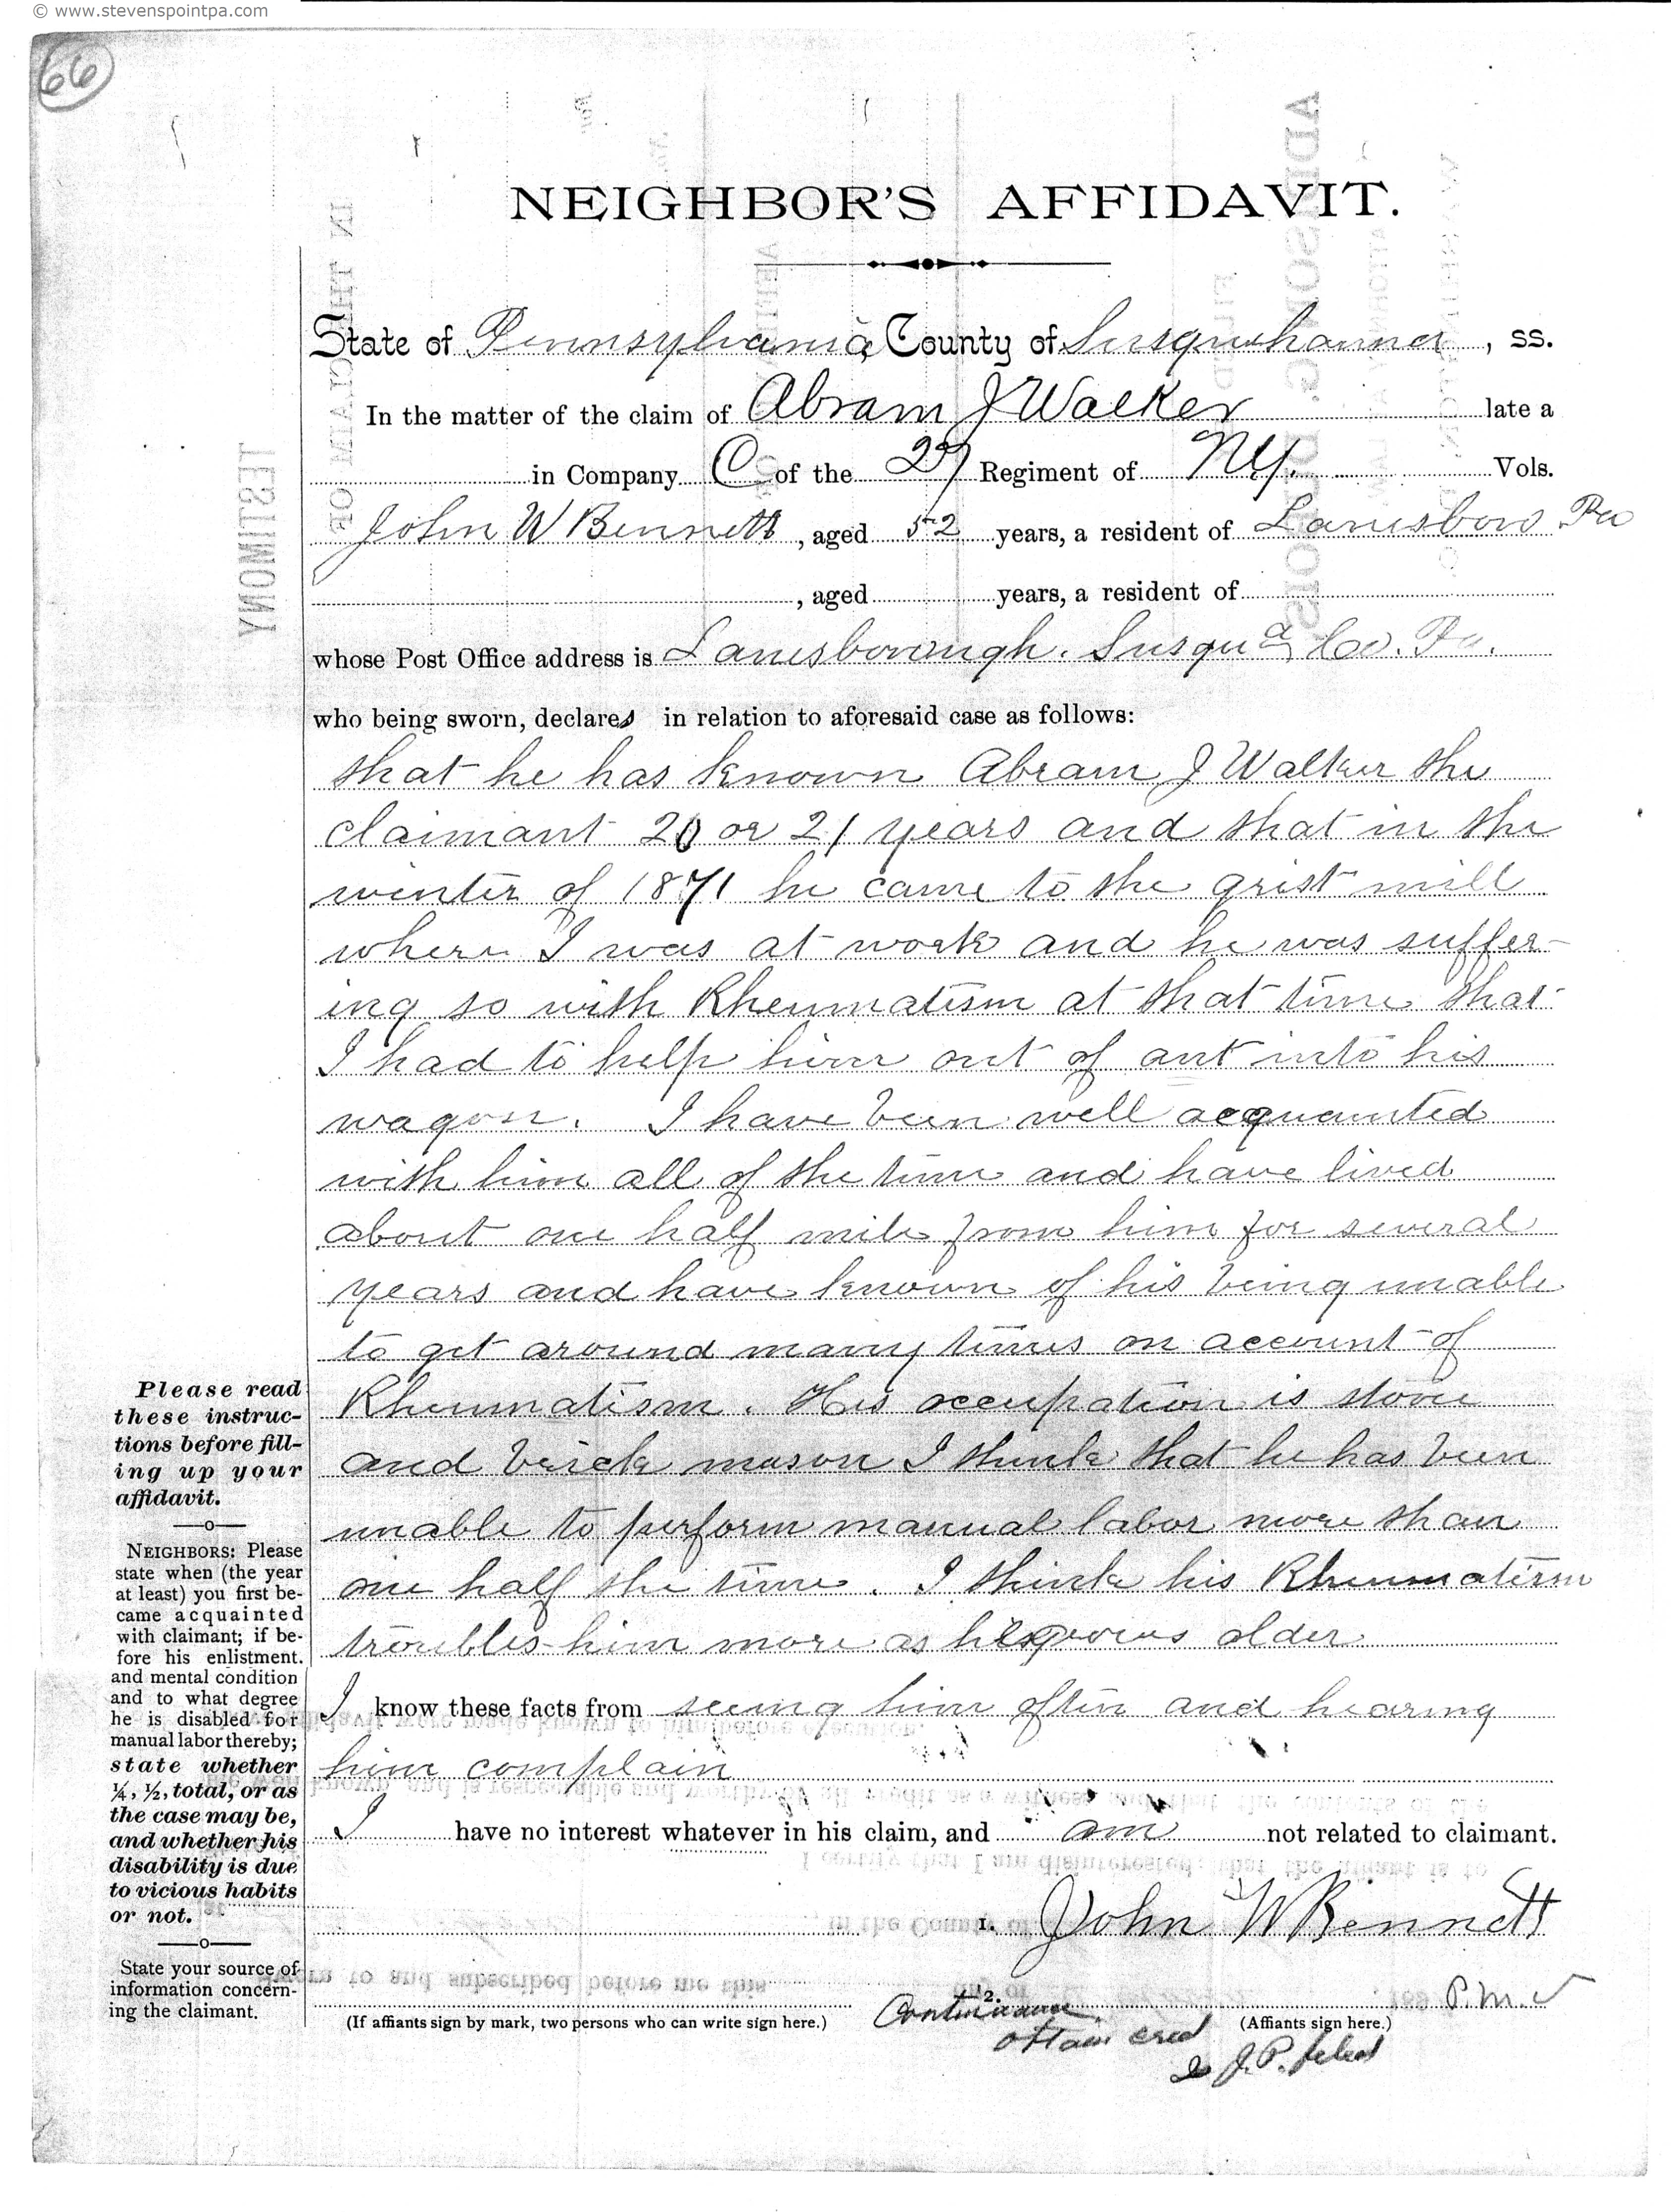 © www.stevenspointpa.com
66
NEIGHBOR'S AFFIDAVIT.
State of Pennsylvania County of Susquehanna, ss.
In the matter of the claim of Abram J Walker late a
in Company C of the 27 Regiment of NY. Vols.
John W Bennett, aged 52 years, a resident of Lanesboro Pa
, aged years, a resident of
whose Post Office address is Lanesborough. Susqua Co. Pa.
who being sworn, declares in relation to aforesaid case as follows:
that he has known Abram J Walker the
claimant 20 or 21 years and that in the
winter of 1871 he came to the grist mill
where I was at work and he was suffer-
ing so with Rheumatism at that time that
I had to help him out of ant into his
wagon. I have been well acquainted
with him all of the time and have lived
about one half mile from him for several
years and have known of his being unable
to get around many times on account of
Rheumatism. His occupation is stone
and brick mason I think that he has been
unable to perform manual labor more than
one half the time. I think his Rheumatism
troubles him more as he grows older
I know these facts from seeing him often and hearing
him complain
I have no interest whatever in his claim, and am not related to claimant.
1. John W Bennett
2.
P.M.
(If affiants sign by mark, two persons who can write sign here.)
(Affiants sign here.)
Continuance
J.P.
Please read
these instruc-
tions before fill-
ing up your
affidavit.
NEIGHBORS: Please
state when (the year
at least) you first be-
came acquainted
with claimant; if be-
fore his enlistment.
and mental condition
and to what degree
he is disabled for
manual labor thereby;
state whether
¼, ½, total, or as
the case may be,
and whether his
disability is due
to vicious habits
or not.
State your source of
information concern-
ing the claimant.
TESTIMONY